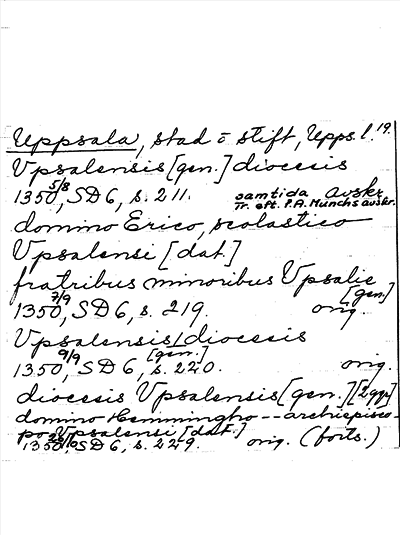 Uppsala, stad o stift, Upps. l. 19.
Vpsalensis [gen.] diocesis
1350 5/8, SD 6, s. 211. samtida avskr.
Tr. eft. P.A. Munchs avskr.
domino Erico, scolastico
Vpsalensi [dat.]
fratribus minoribus Vpsalie [gen.]
1350 7/9, SD 6, s. 219. orig.
Vpsalensis [gen.] diocesis
1350 9/9, SD 6, s. 220. orig.
diocesis Vpsalensis [gen.] [2 ggr]
domino Hemmingho -- archiepisco-
po Vpsalensi [dat.]
1350, SD 6, s. 229. orig. (forts.)